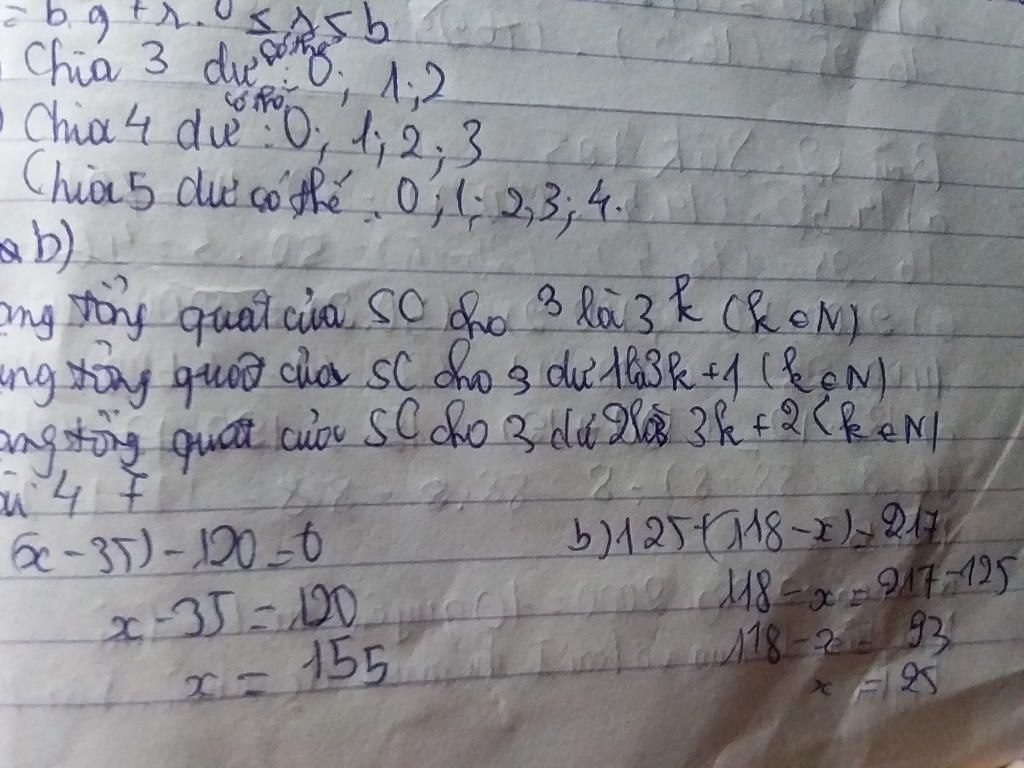 = b.q + r. 0 ≤ r < b
Chia 3 dư có thể : 0; 1; 2
Chia 4 dư có thể : 0; 1; 2; 3
Chia 5 dư có thể : 0; 1; 2; 3; 4.
b)
ạng tổng quát của SC cho 3 là 3k (k ∈ N)
ạng tổng quát của SC cho 3 dư 1 là 3k + 1 (k ∈ N)
ạng tổng quát của SC cho 3 dư 2 là 3k + 2 (k ∈ N)
4 7
(x - 35) - 120 = 0
x - 35 = 120
x = 155
b) 125 + (118 - x) = 217
118 - x = 217 - 125
118 - x = 93
x = 25